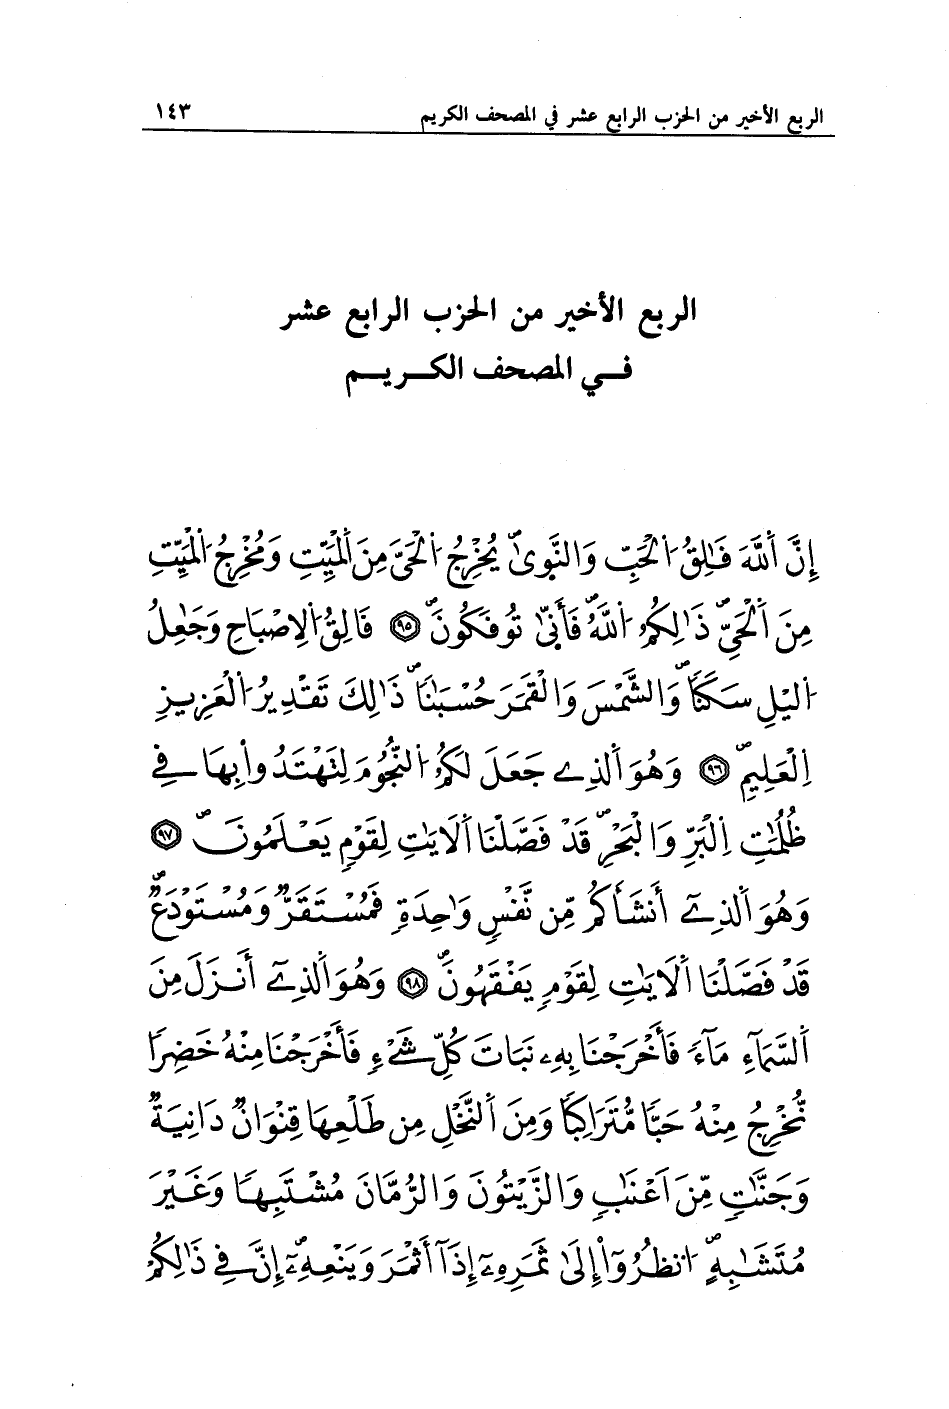 الربع الأخير من الحزب الرابع عشر في المصحف الكريم ١٤٣
الربع الأخير من الحزب الرابع عشر
في المصحف الكريم
إِنَّ اَ۬للَّهَ فَٰلِقُ اُ۬لْحَبِّ وَالنَّوَىٰۖ يُخْرِجُ اُ۬لْحَيَّ مِنَ اَ۬لْمَيِّتِ وَمُخْرِجُ اُ۬لْمَيِّتِ
مِنَ اَ۬لْحَيِّۖ ذَٰلِكُمُ اُ۬للَّهُۖ فَأَنّ۪ىٰ تُوفَكُونَۖ ٩٥ فَالِقُ اُ۬لِاصْبَاحِ وَجَٰعِلُ
اُ۬ليْلِ سَكَناٗۖ وَالشَّمْسَ وَالْقَمَرَ حُسْبَٰناٗۖ ذَٰلِكَ تَقْدِيرُ اُ۬لْعَزِيزِ
اِ۬لْعَلِيمِۖ ٩٦ وَهُوَ اَ۬لذِے جَعَلَ لَكُمُ اُ۬لنُّجُومَ لِتَهْتَدُواْ بِهَا فِے
ظُلُمَٰتِ اِ۬لْبَرِّ وَالْبَحْرِۖ قَدْ فَصَّلْنَا اَ۬لَايَٰتِ لِقَوْمٖ يَعْلَمُونَۖ ٩٧
وَهُوَ اَ۬لذِےٓ أَنشَأَكُم مِّن نَّفْسٖ وَٰحِدَةٖ فَمُسْتَقَرّٞ وَمُسْتَوْدَعٞۖ
قَدْ فَصَّلْنَا اَ۬لَايَٰتِ لِقَوْمٖ يَفْقَهُونَۖ ٩٨ وَهُوَ اَ۬لذِےٓ أَنزَلَ مِنَ
اَ۬لسَّمَآءِ مَآءٗ فَأَخْرَجْنَا بِهِۦ نَبَاتَ كُلِّ شَےْءٖ فَأَخْرَجْنَا مِنْهُ خَضِراٗ
نُّخْرِجُ مِنْهُ حَبّاٗ مُّتَرَاكِباٗ وَمِنَ اَ۬لنَّخْلِ مِن طَلْعِهَا قِنْوَانٞ دَانِيَةٞ
وَجَنَّٰتٖ مِّنَ اَعْنَٰبٖ وَالزَّيْتُونَ وَالرُّمَّانَ مُشْتَبِهاٗ وَغَيْرَ
مُتَشَٰبِهٍۖ اُ۟نظُرُوٓاْ إِلَىٰ ثَمَرِهِۦٓ إِذَآ أَثْمَرَ وَيَنْعِهِۦٓۖ إِنَّ فِے ذَٰلِكُمْ